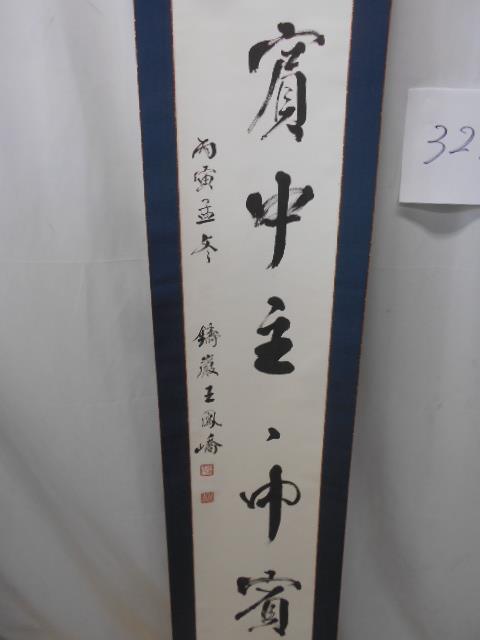 賓中主、中賓
丙寅孟冬 鑄巖王鳳嶠
32